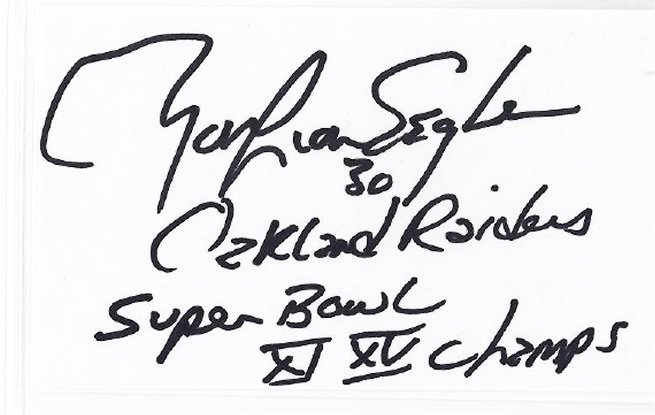 Mark van Eeghen
30
Oakland Raiders
Super Bowl
XI XV Champs